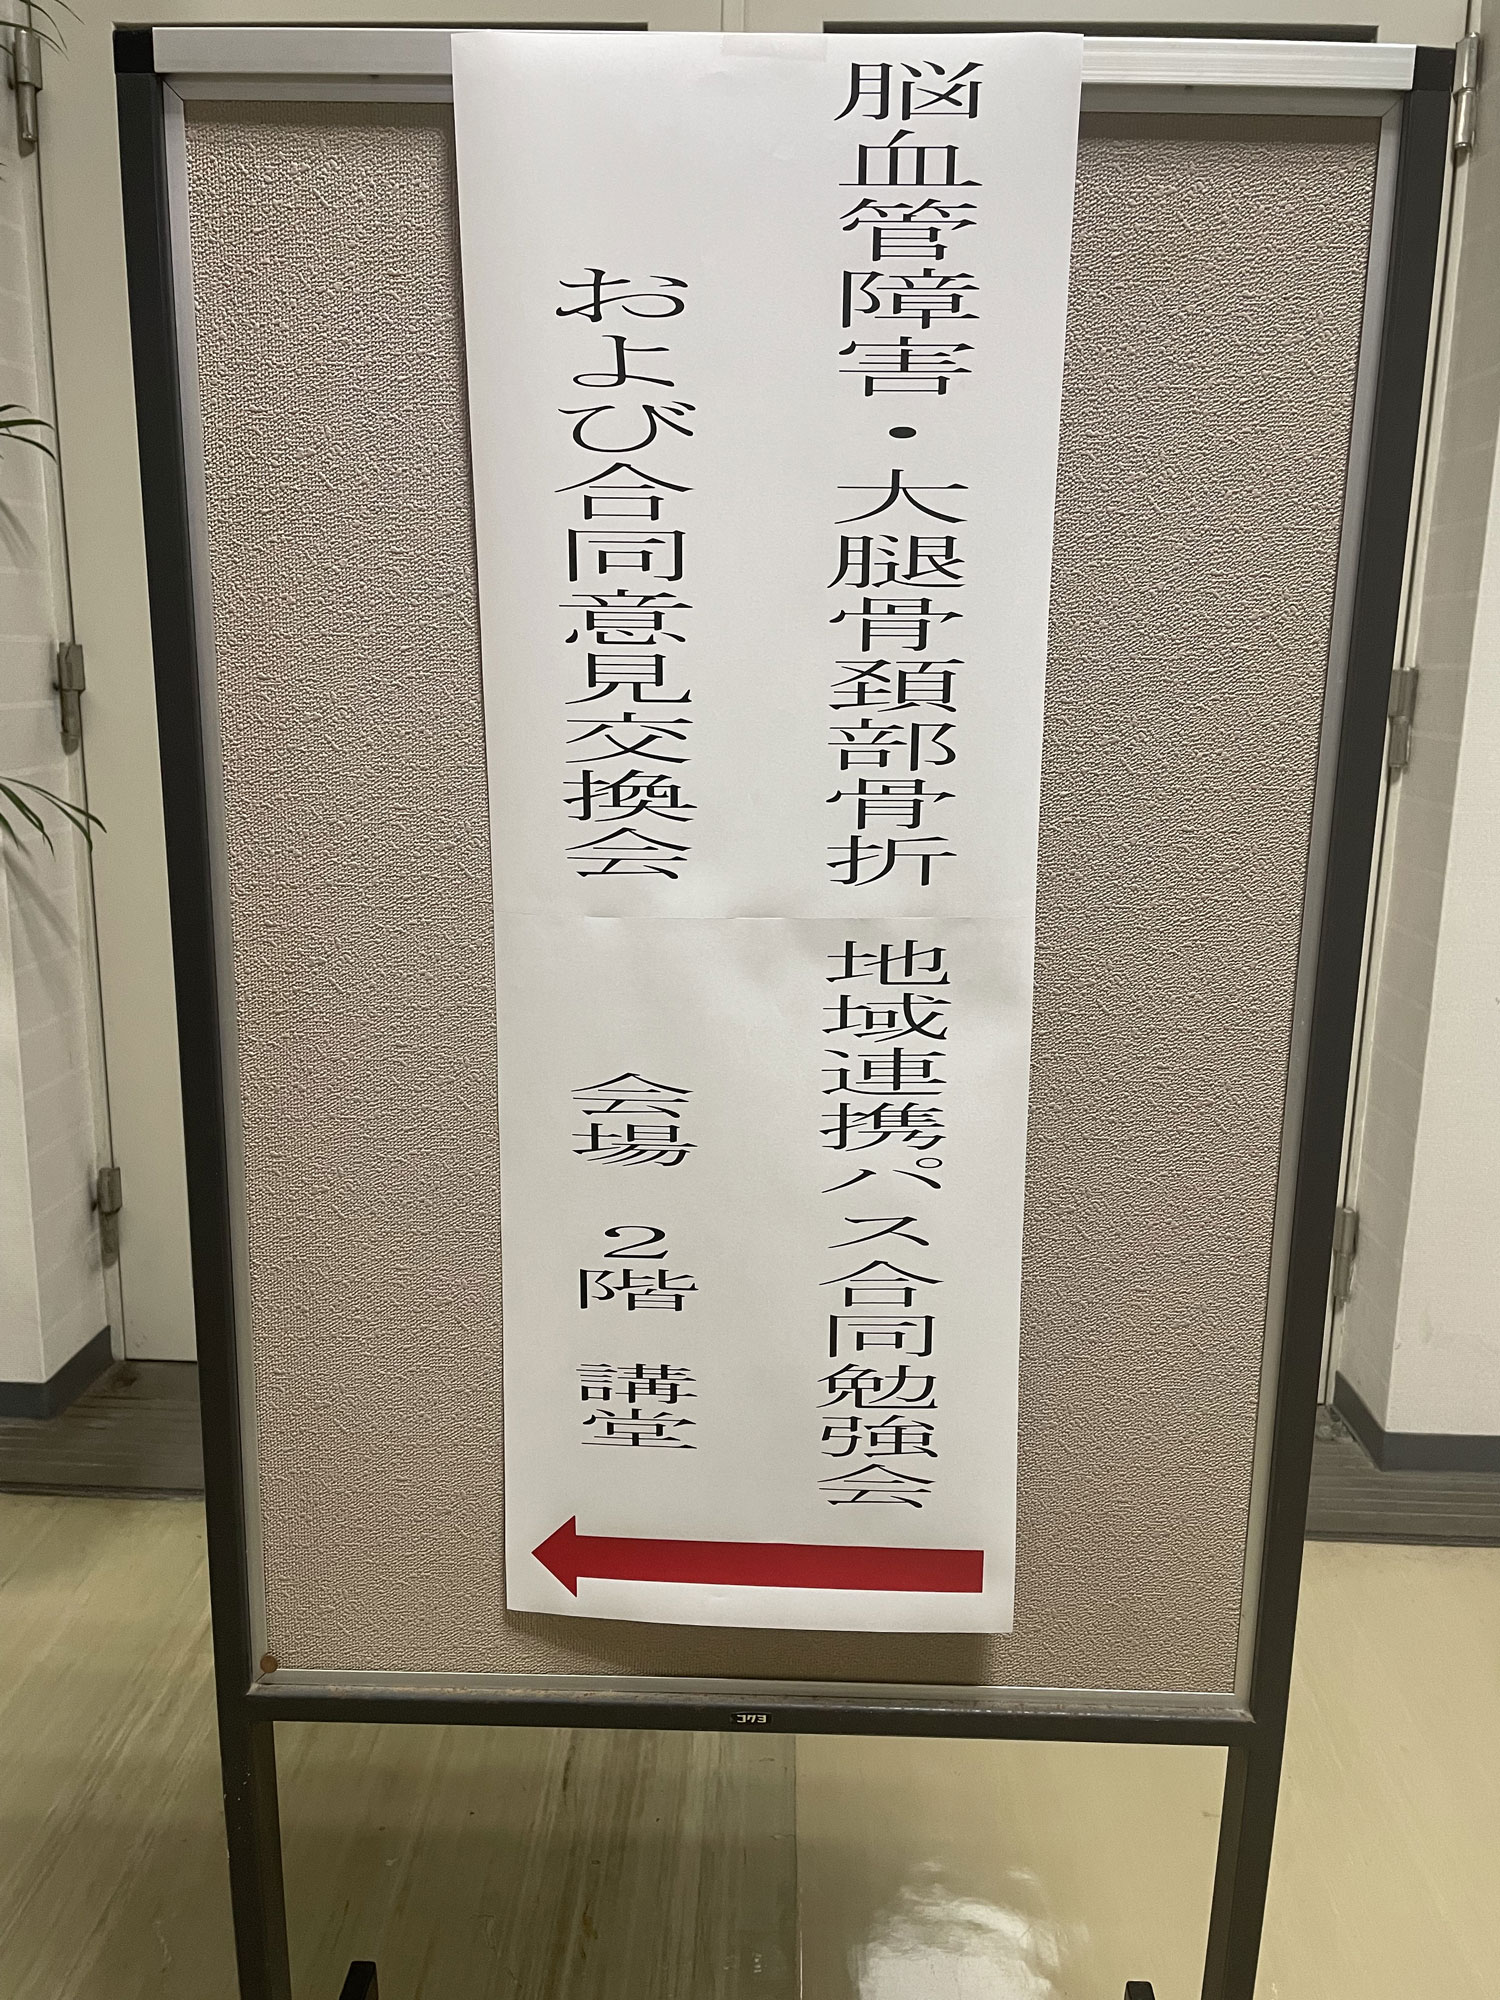 脳血管障害・大腿骨頚部骨折 地域連携パス合同勉強会
および合同意見交換会 会場 2階 講堂
コクヨ